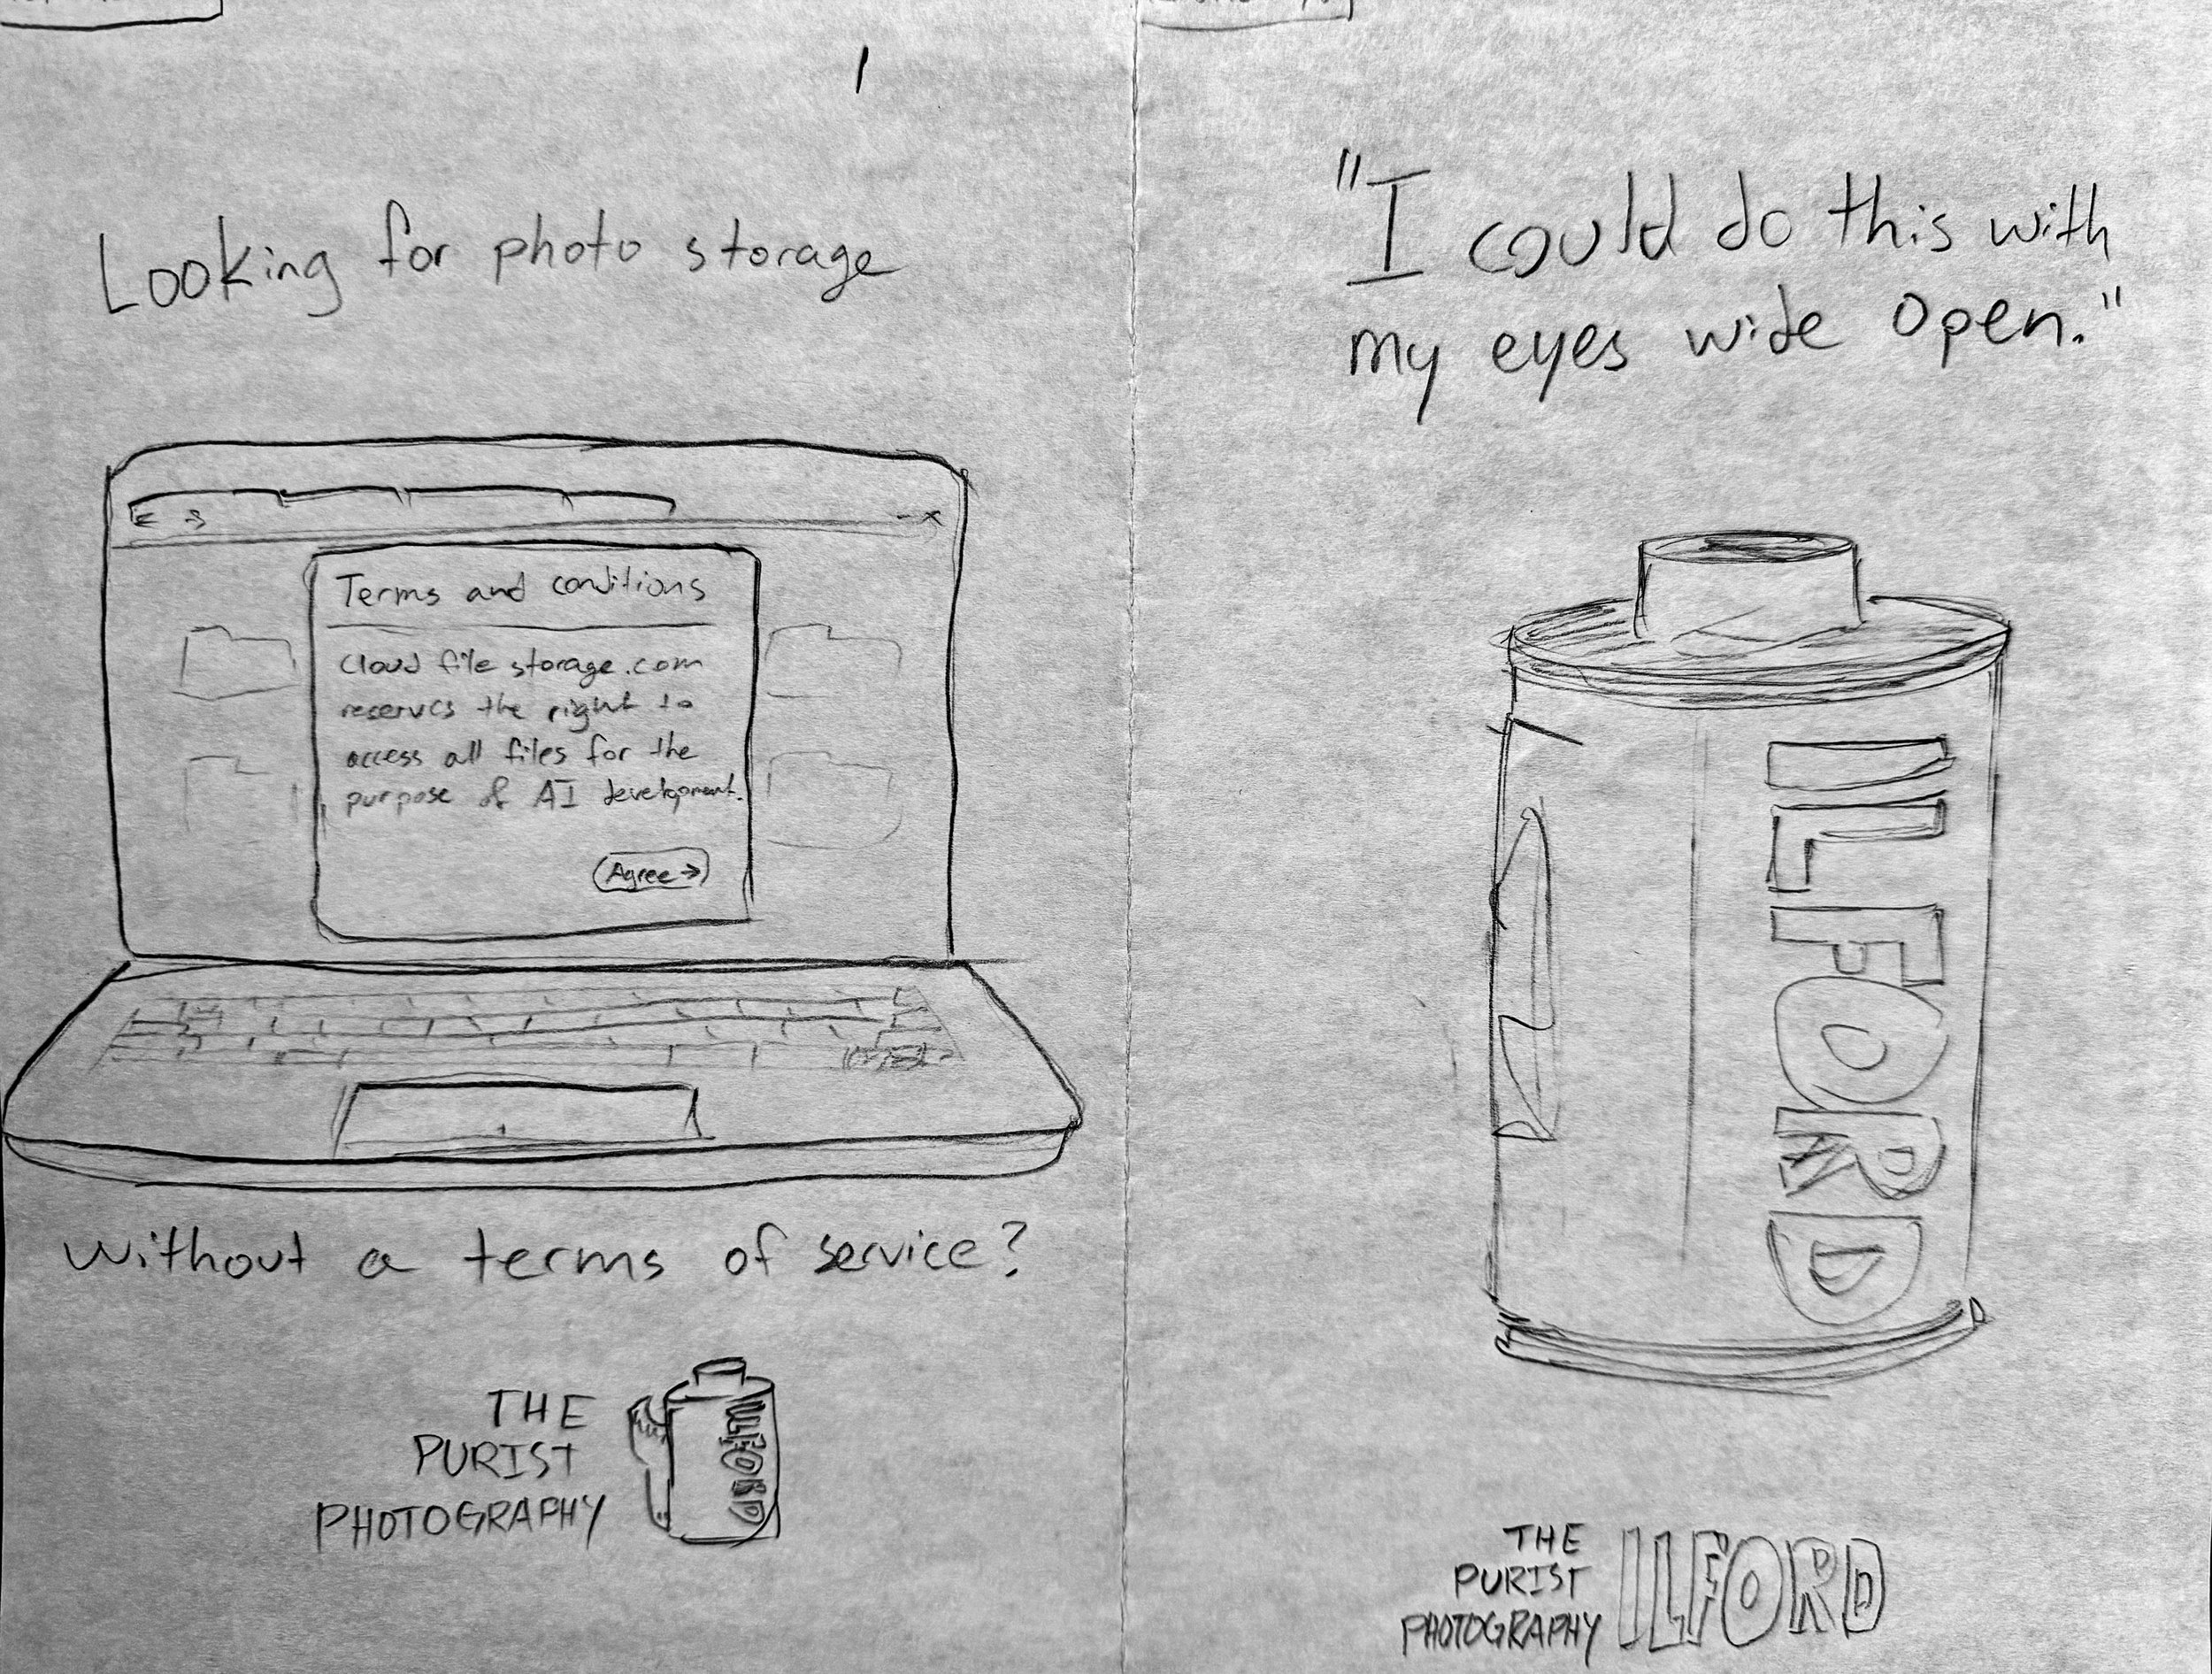 Looking for photo storage
Terms and conditions
Cloud file storage.com
reserves the right to
access all files for the
purpose of AI development.
Agree →
without a terms of service?
THE
PURIST
PHOTOGRAPHY
ILFORD
"I could do this with
my eyes wide open."
ILFORD
THE
PURIST
PHOTOGRAPHY
ILFORD